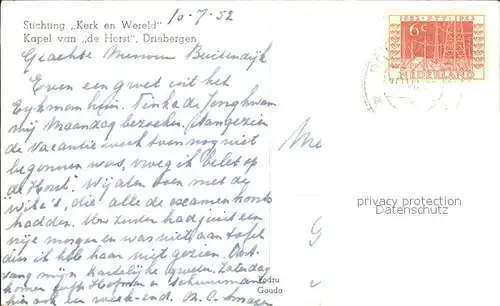 10-7-52
Stichting „Kerk en Wereld”
Kapel van „de Horst”, Driebergen.
Geachte Mevrouw Buitendijk
Even een groet uit het
Eykmanhuis. Tinka de Jongh kwam
mij Maandag bezoeken. Aangezien
de vacantie week toen nog niet
begonnen was, vroeg ik belet op
„de Horst”. Wij aten toen met de
die alle de examenkoorts
hadden. Uw zuster had juist een
vrije morgen en was niet aan tafel
dus ik heb haar niet gezien. Ont-
vang mijn hartelijke groeten. Zaterdag
komen Hofman en
hier ook een week-end.
Me
G
Fodru
Gouda
1852 PTT 1952
6c
NEDERLAND
privacy protection
Datenschutz